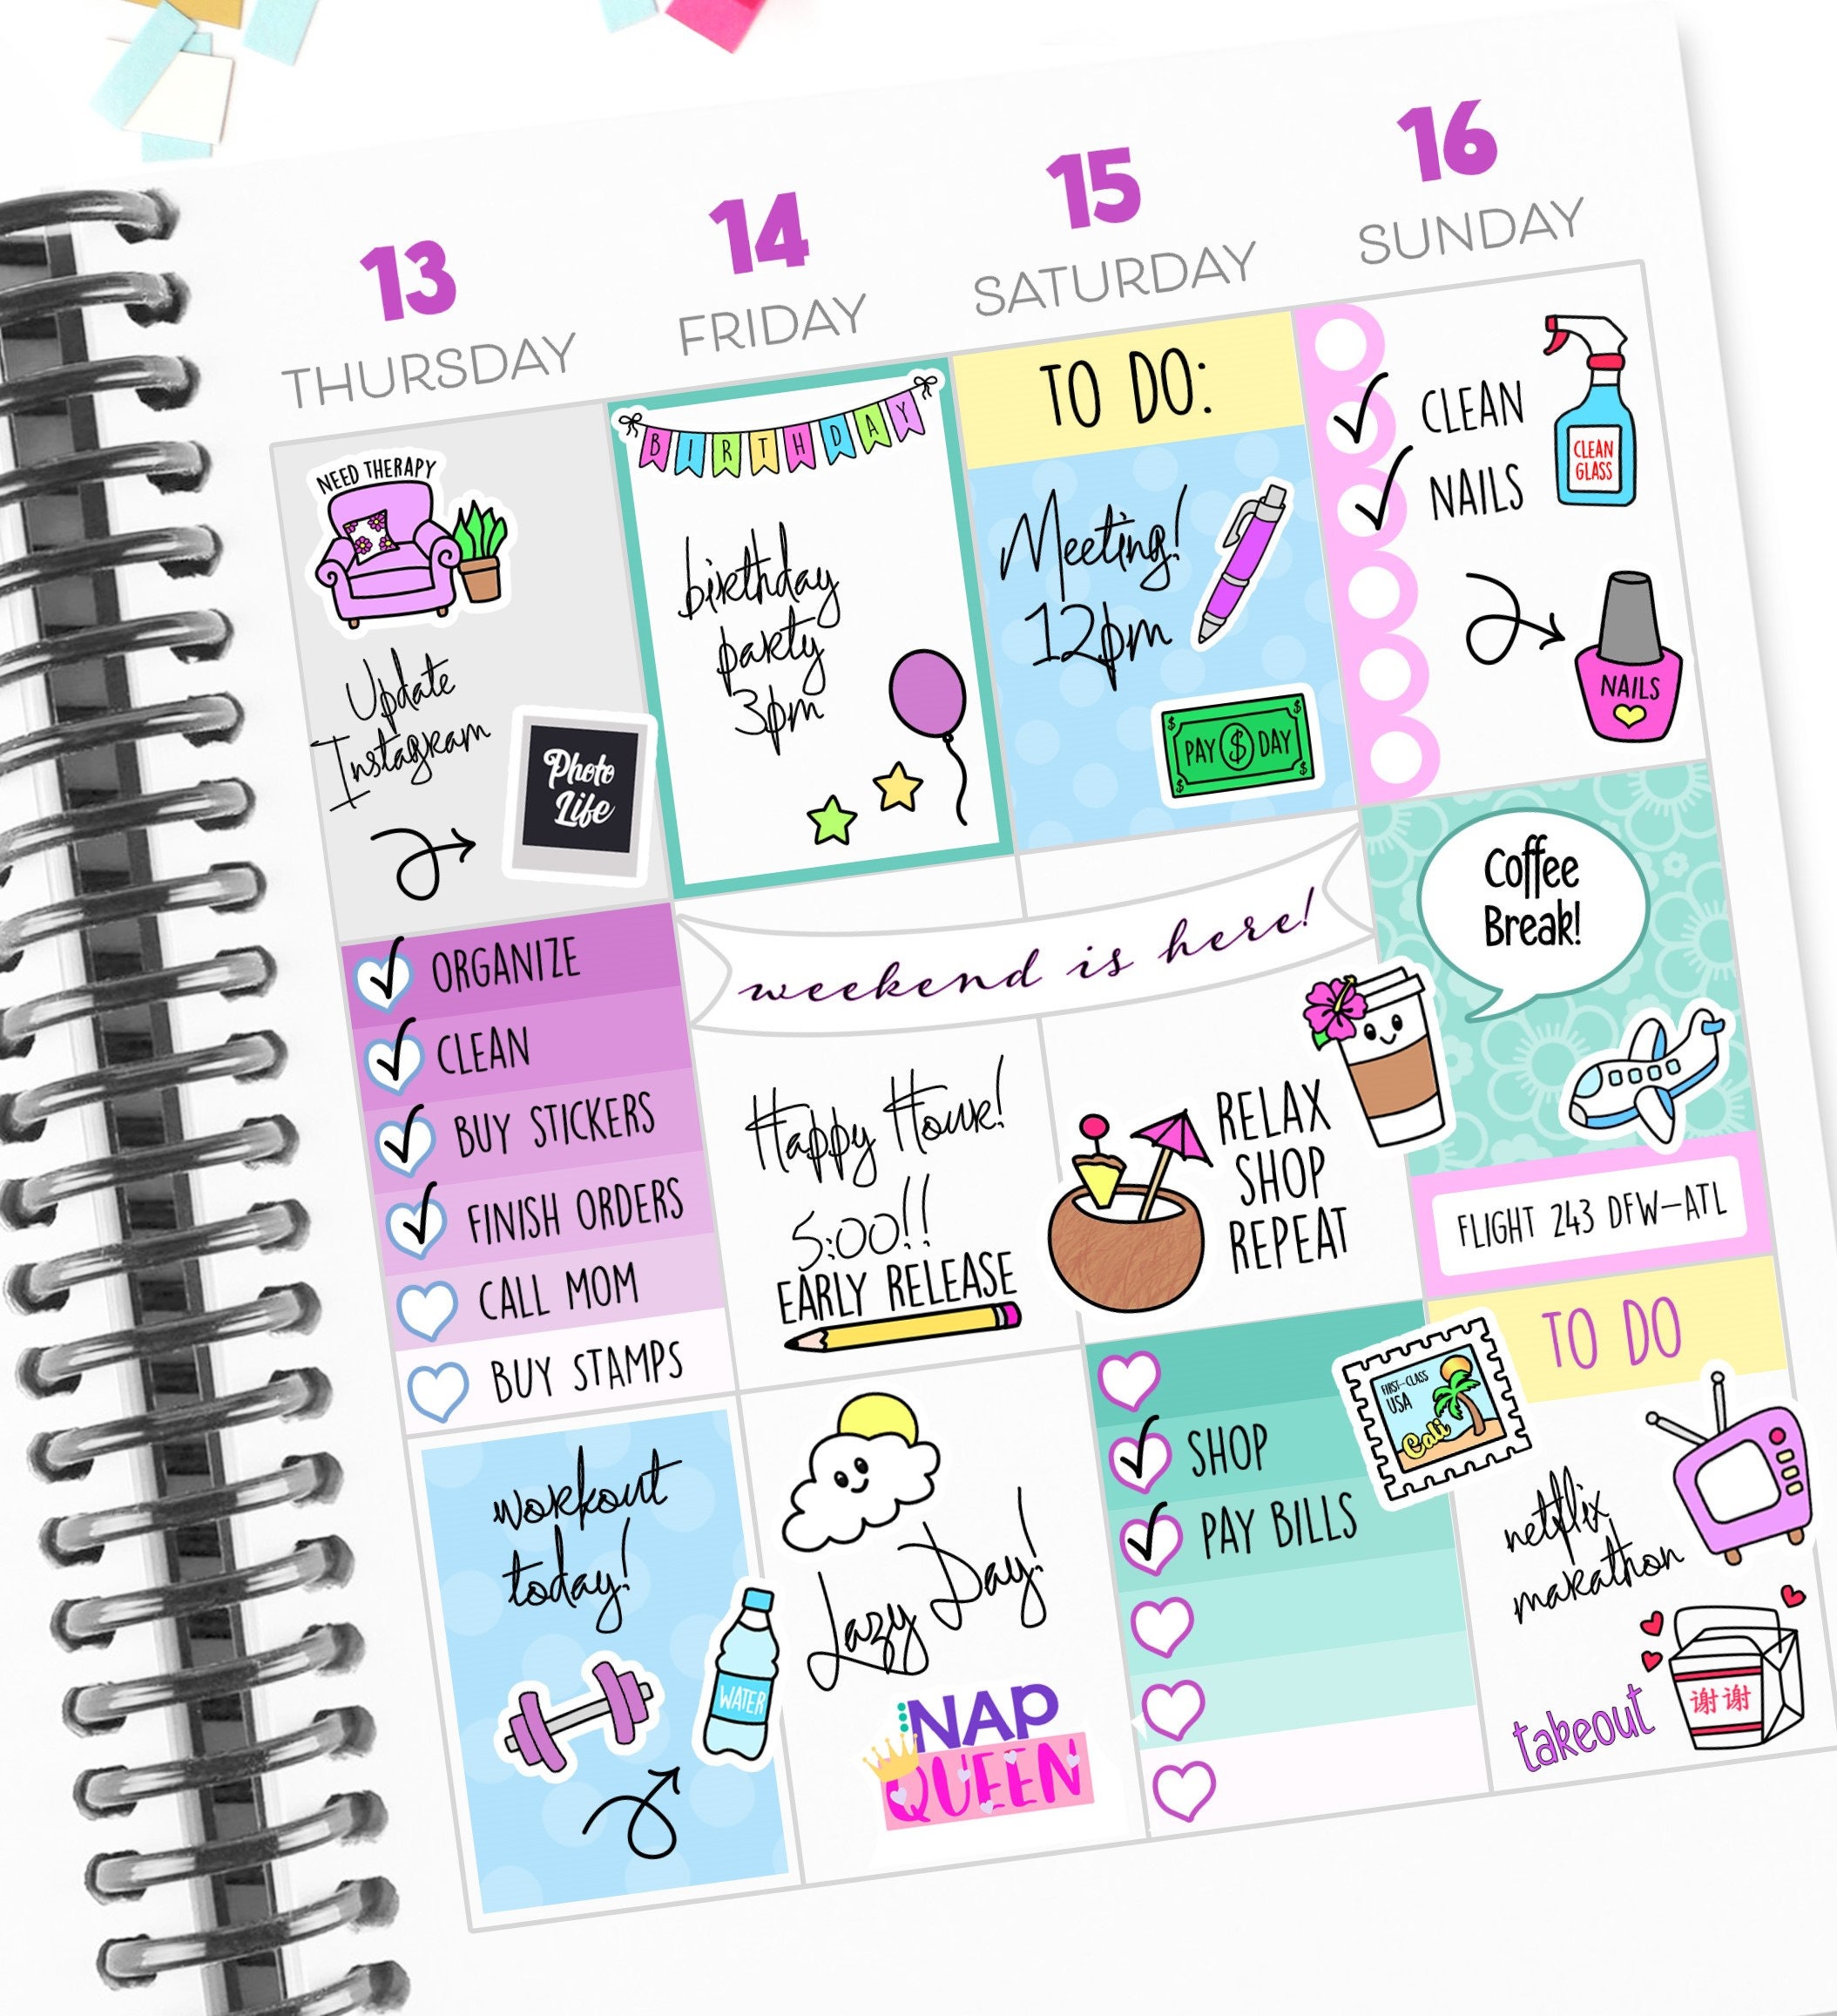 13
THURSDAY
14
FRIDAY
15
SATURDAY
16
SUNDAY
NEED THERAPY
Update
Instagram
Photo
Life
ORGANIZE
CLEAN
BUY STICKERS
FINISH ORDERS
CALL MOM
BUY STAMPS
workout
today!
WATER
BIRTHDAY
birthday
party
3pm
weekend is here!
Happy Hour!
5:00!!
EARLY RELEASE
Lazy Day!
NAP
QUEEN
TO DO:
Meeting!
12pm
PAY $ DAY
RELAX
SHOP
REPEAT
SHOP
PAY BILLS
CLEAN
NAILS
CLEAN
GLASS
NAILS
Coffee
Break!
FLIGHT 243 DFW-ATL
FIRST-CLASS
USA
Cali
TO DO
netflix
marathon
takeout
谢谢